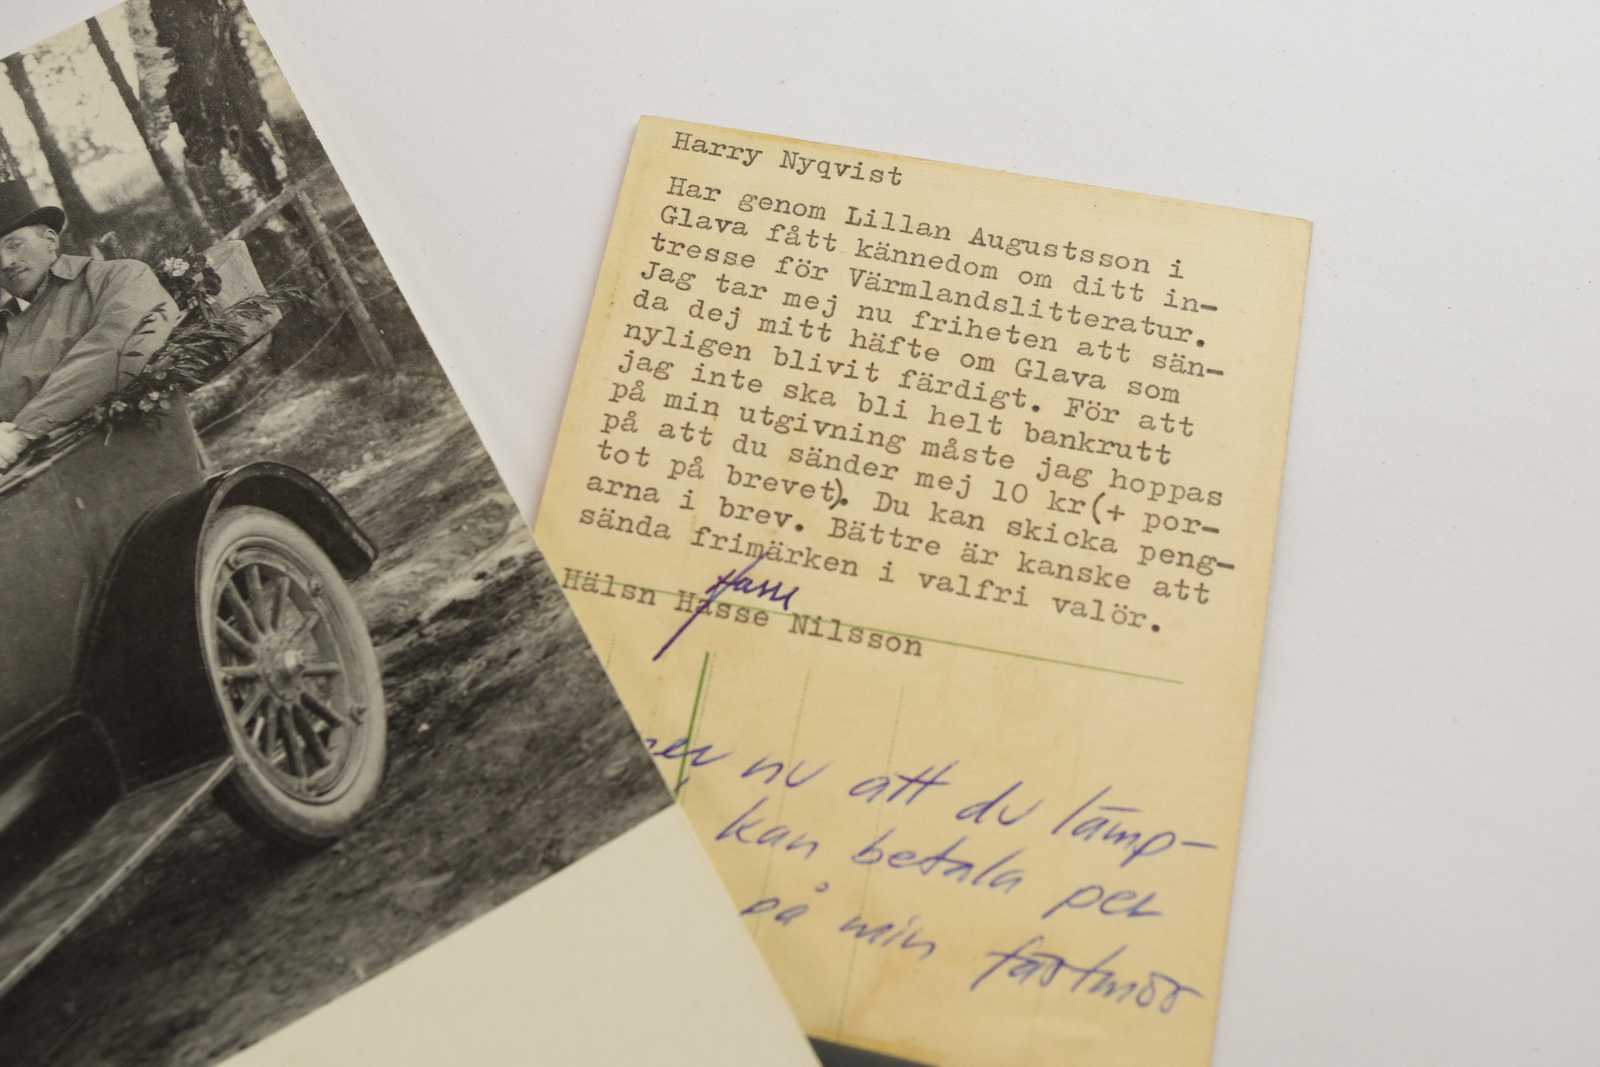 Harry Nyqvist
Har genom Lillan Augustsson i
Glava fått kännedom om ditt in-
tresse för Värmlandslitteratur.
Jag tar mej nu friheten att sän-
da dej mitt häfte om Glava som
nyligen blivit färdigt. För att
jag inte ska bli helt bankrutt
på min utgivning måste jag hoppas
på att du sänder mej 10 kr(+ por-
tot på brevet). Du kan skicka peng-
arna i brev. Bättre är kanske att
sända frimärken i valfri valör.
Hasse
Hälsn Hasse Nilsson
nu att du lämp-
kan betala per
på min